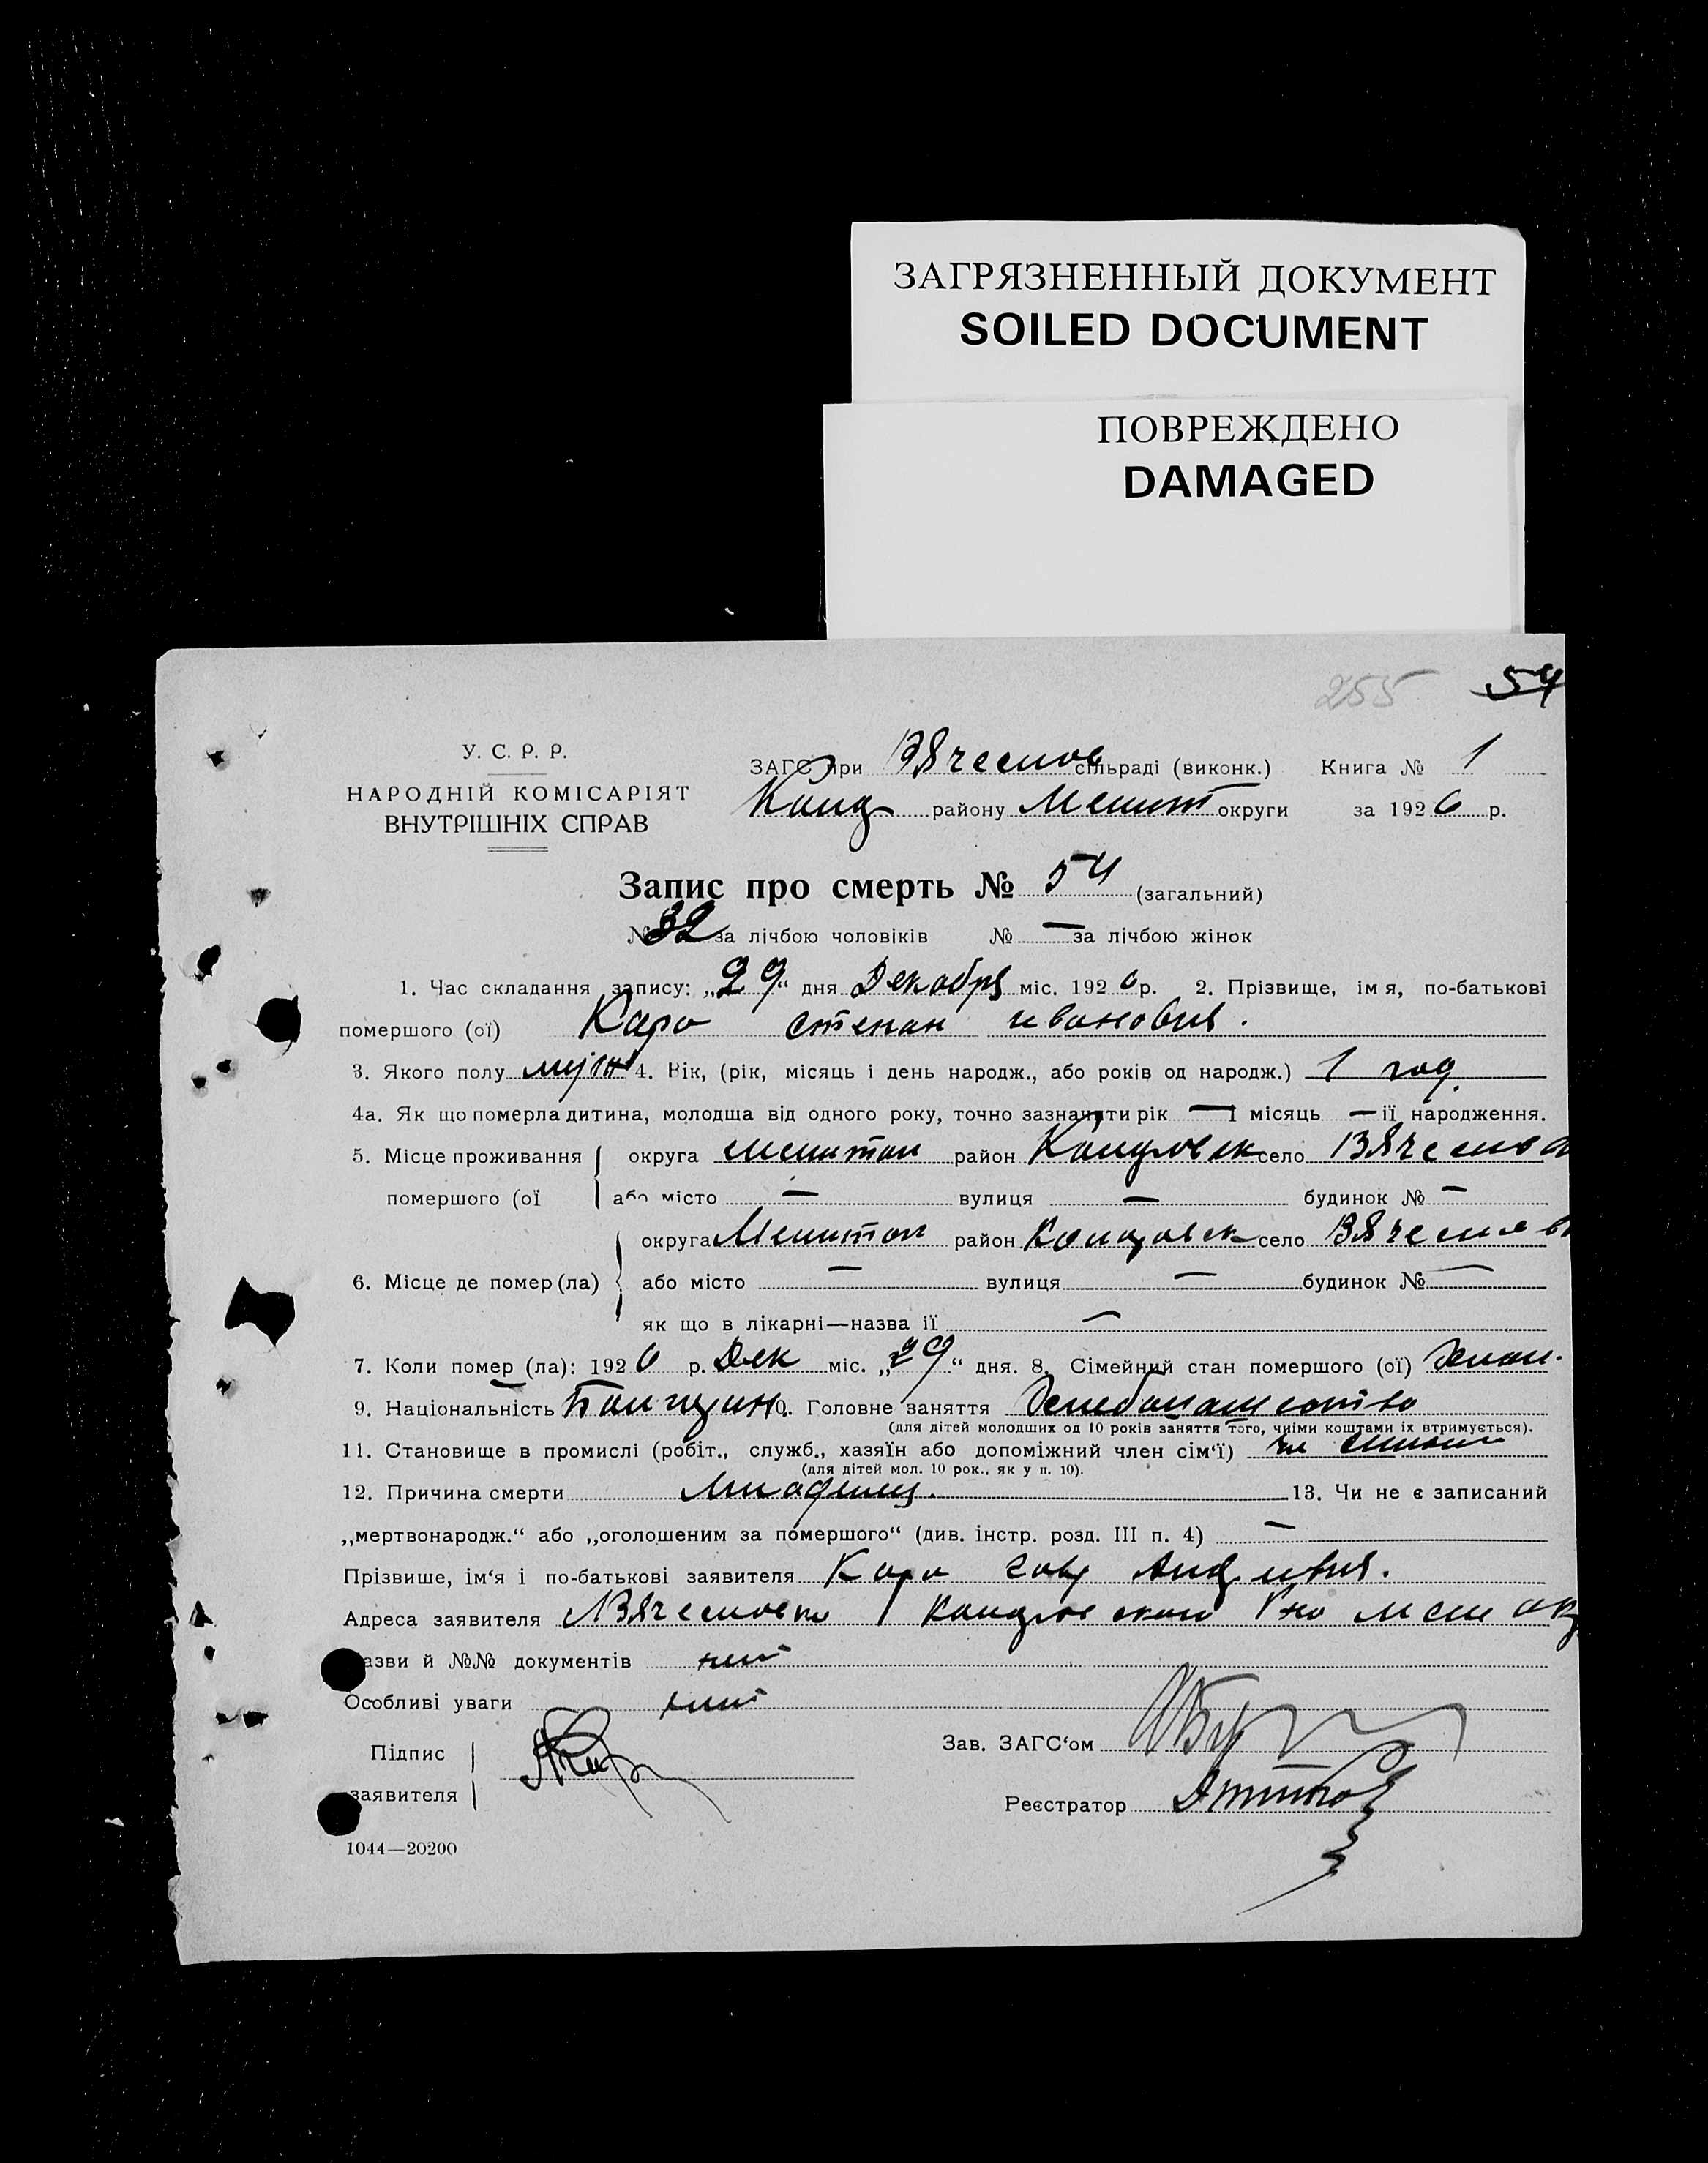 ЗАГРЯЗНЕННЫЙ ДОКУМЕНТ
SOILED DOCUMENT
ПОВРЕЖДЕНО
DAMAGED
255 54
У. С. Р. Р.
НАРОДНІЙ КОМІСАРІЯТ
ВНУТРІШНІХ СПРАВ
ЗАГС при Вячеслов сільраді (виконк.) Книга № 1
району Мелит округи за 1926 р.
Запис про смерть № 54 (загальний)
№ 32 за лічбою чоловіків № — за лічбою жінок
1. Час складання запису: „29“ дня Декабря міс. 1926 р. 2. Прізвище, імя, по-батькові
помершого (ої) Кара степан иванович.
3. Якого полу муж 4. Вік, (рік, місяць і день народж., або років од народж.) 1 год
4а. Як що померла дитина, молодша від одного року, точно зазначити рік — і місяць — її народження.
5. Місце проживання округа мелитоп район село Вячеслов
помершого (ої або місто — вулиця — будинок № —
округа Мелитоп район село Вячеслов
6. Місце де помер (ла) або місто — вулиця — будинок № —
як що в лікарні—назва її —
7. Коли помер (ла): 1926 р. Дек міс. „29“ дня. 8. Сімейний стан помершого (ої)
9. Національність 10. Головне заняття
(для дітей молодших од 10 років заняття того, чиїми коштами їх втримується).
11. Становище в промислі (робіт., служб., хазяїн або допоміжний член сім‘ї)
(для дітей мол. 10 рок., як у п. 10).
12. Причина смерти младенец. 13. Чи не є записаний
„мертвонародж.“ або „оголошеним за помершого“ (див. інстр. розд. III п. 4) —
Прізвише, ім‘я і по-батькові заявителя Кара
Адреса заявителя
азви й №№ документів нит
Особливі уваги нит
Підпис
заявителя
Зав. ЗАГС‘ом
Реєстратор
1044—20200